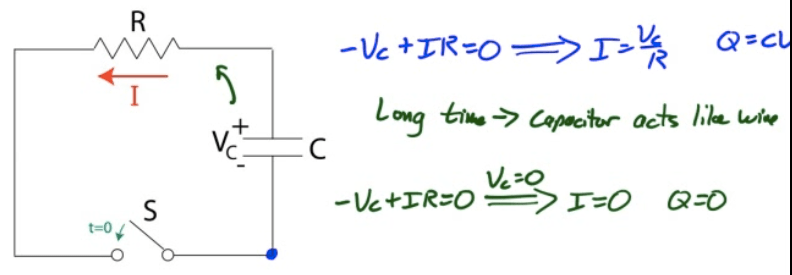 R
I
V_C + -
C
S
t=0
-Vc+IR=0 ⟹ I=Vc/R Q=CV
Long time → Capacitor acts like wire
-Vc+IR=0 Vc=0 ⟹ I=0 Q=0